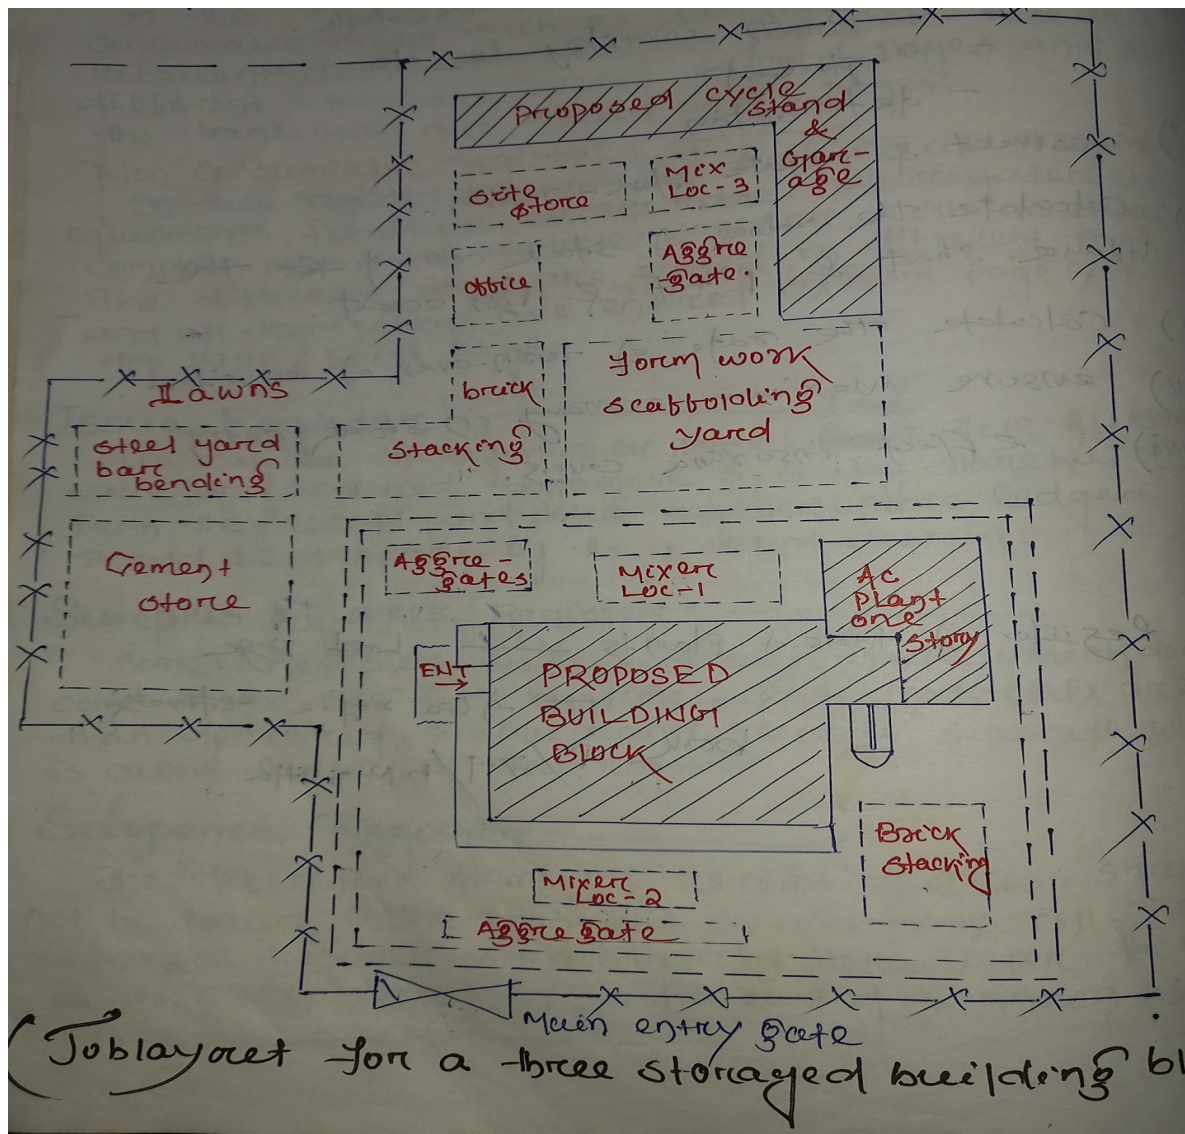 Proposed cycle
stand
&
Gar-
age
Site
store
Mix
Loc-3
office
Aggre
-gate.
Lawns
brick
stacking
form work
scaffolding
yard
steel yard
bar
bending
Cement
store
Aggre-
gates
Mixer
Loc-1
Ac
plant
one
story
ENT
PROPOSED
BUILDING
BLOCK
Brick
stacking
Mixer
Loc-2
Aggregate
Main entry gate
(Joblayout for a three storayed building bl